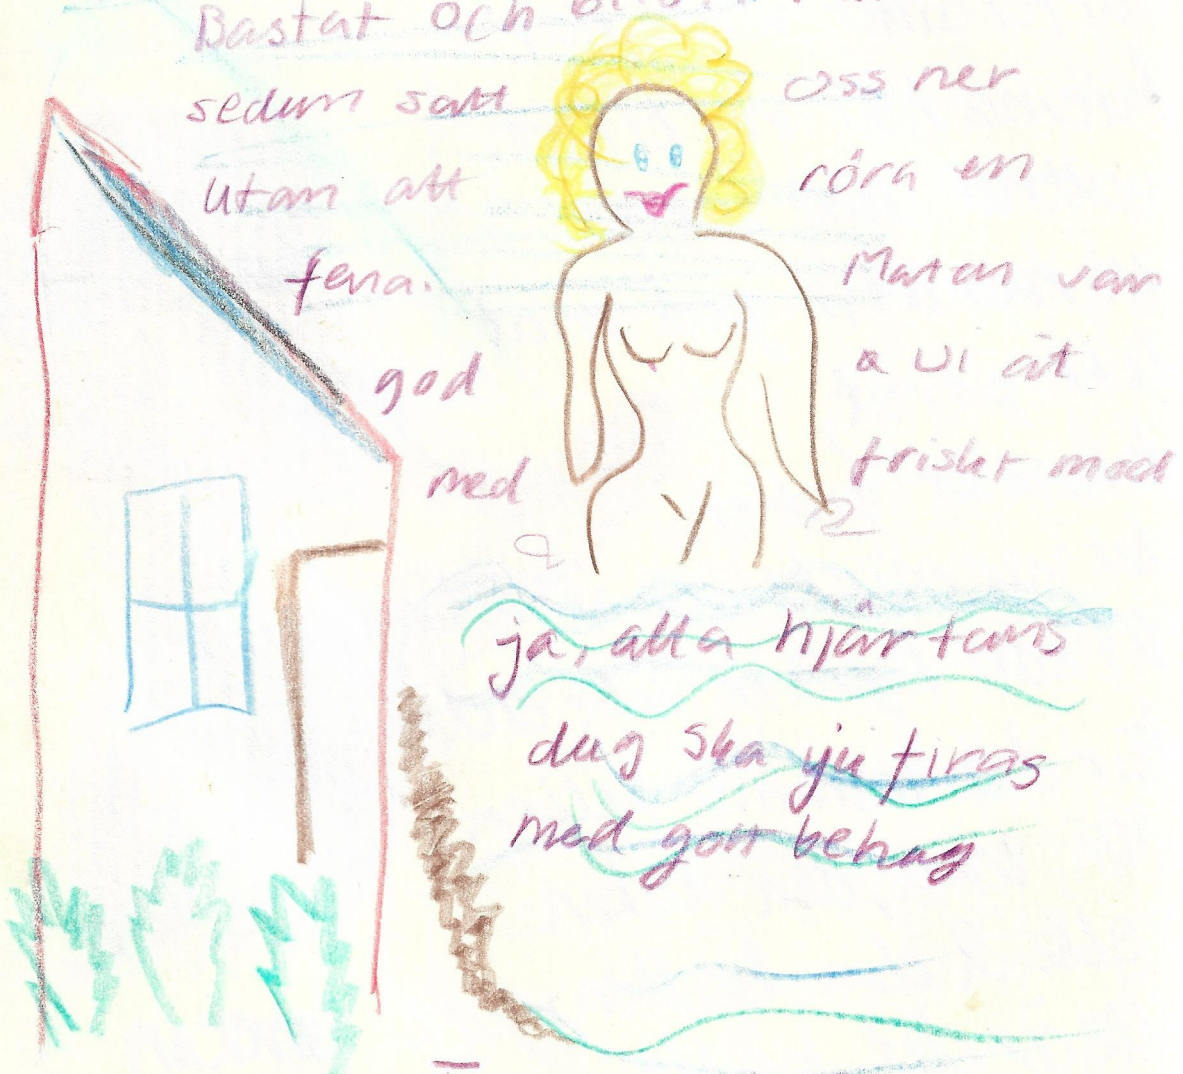 Bastat och
sedan satt oss ner
utan att röra en
fena. Maten var
god & vi åt
med friskt mod
ja, alla hjärtans
dag ska ju firas
med gott behag